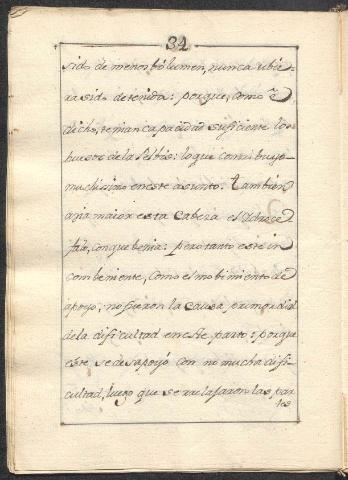 32
sido de menor bólumen, nunca ubie-
ra sido detenida: porque, como ê
dicho, tenian capacidad suficiente los
huesos de la Pelbis: lo que contribuyo
muchissimo en este asunto: tambien
acia maior esta Cabeza el Idroce
falo, con que benia: pero tanto este in
combeniente, como el mobimiento de
apoyo, no fueron la causa primordial
de la dificultad en este parto: porque
este se desapoyó con no mucha difi
cultad, luego que se relajaron las par
tes